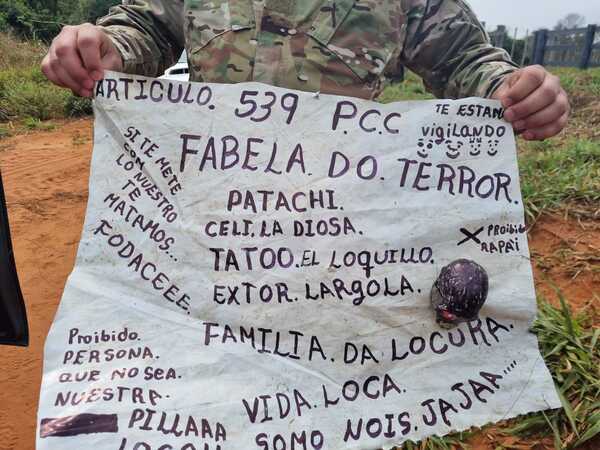 ARTICULO. 539 P.C.C
TE ESTAN
vigiLANDO
FABELA. DO. TERROR.
SI TE METE
CON
LO NUESTRO
TE
MATAMOS...
FODACEEE.
PATACHI.
CELI. LA DIOSA.
TATOO. EL LOQUILLO.
EXTOR. LARGOLA.
X PROIBID
RAPA'i
FAMILIA. DA LOCURA.
Proibido.
PERSONA.
QUE NO SEA.
NUESTRA.
PILLAAA
VIDA. LOCA.
SOMO NOIS. JAJAA....